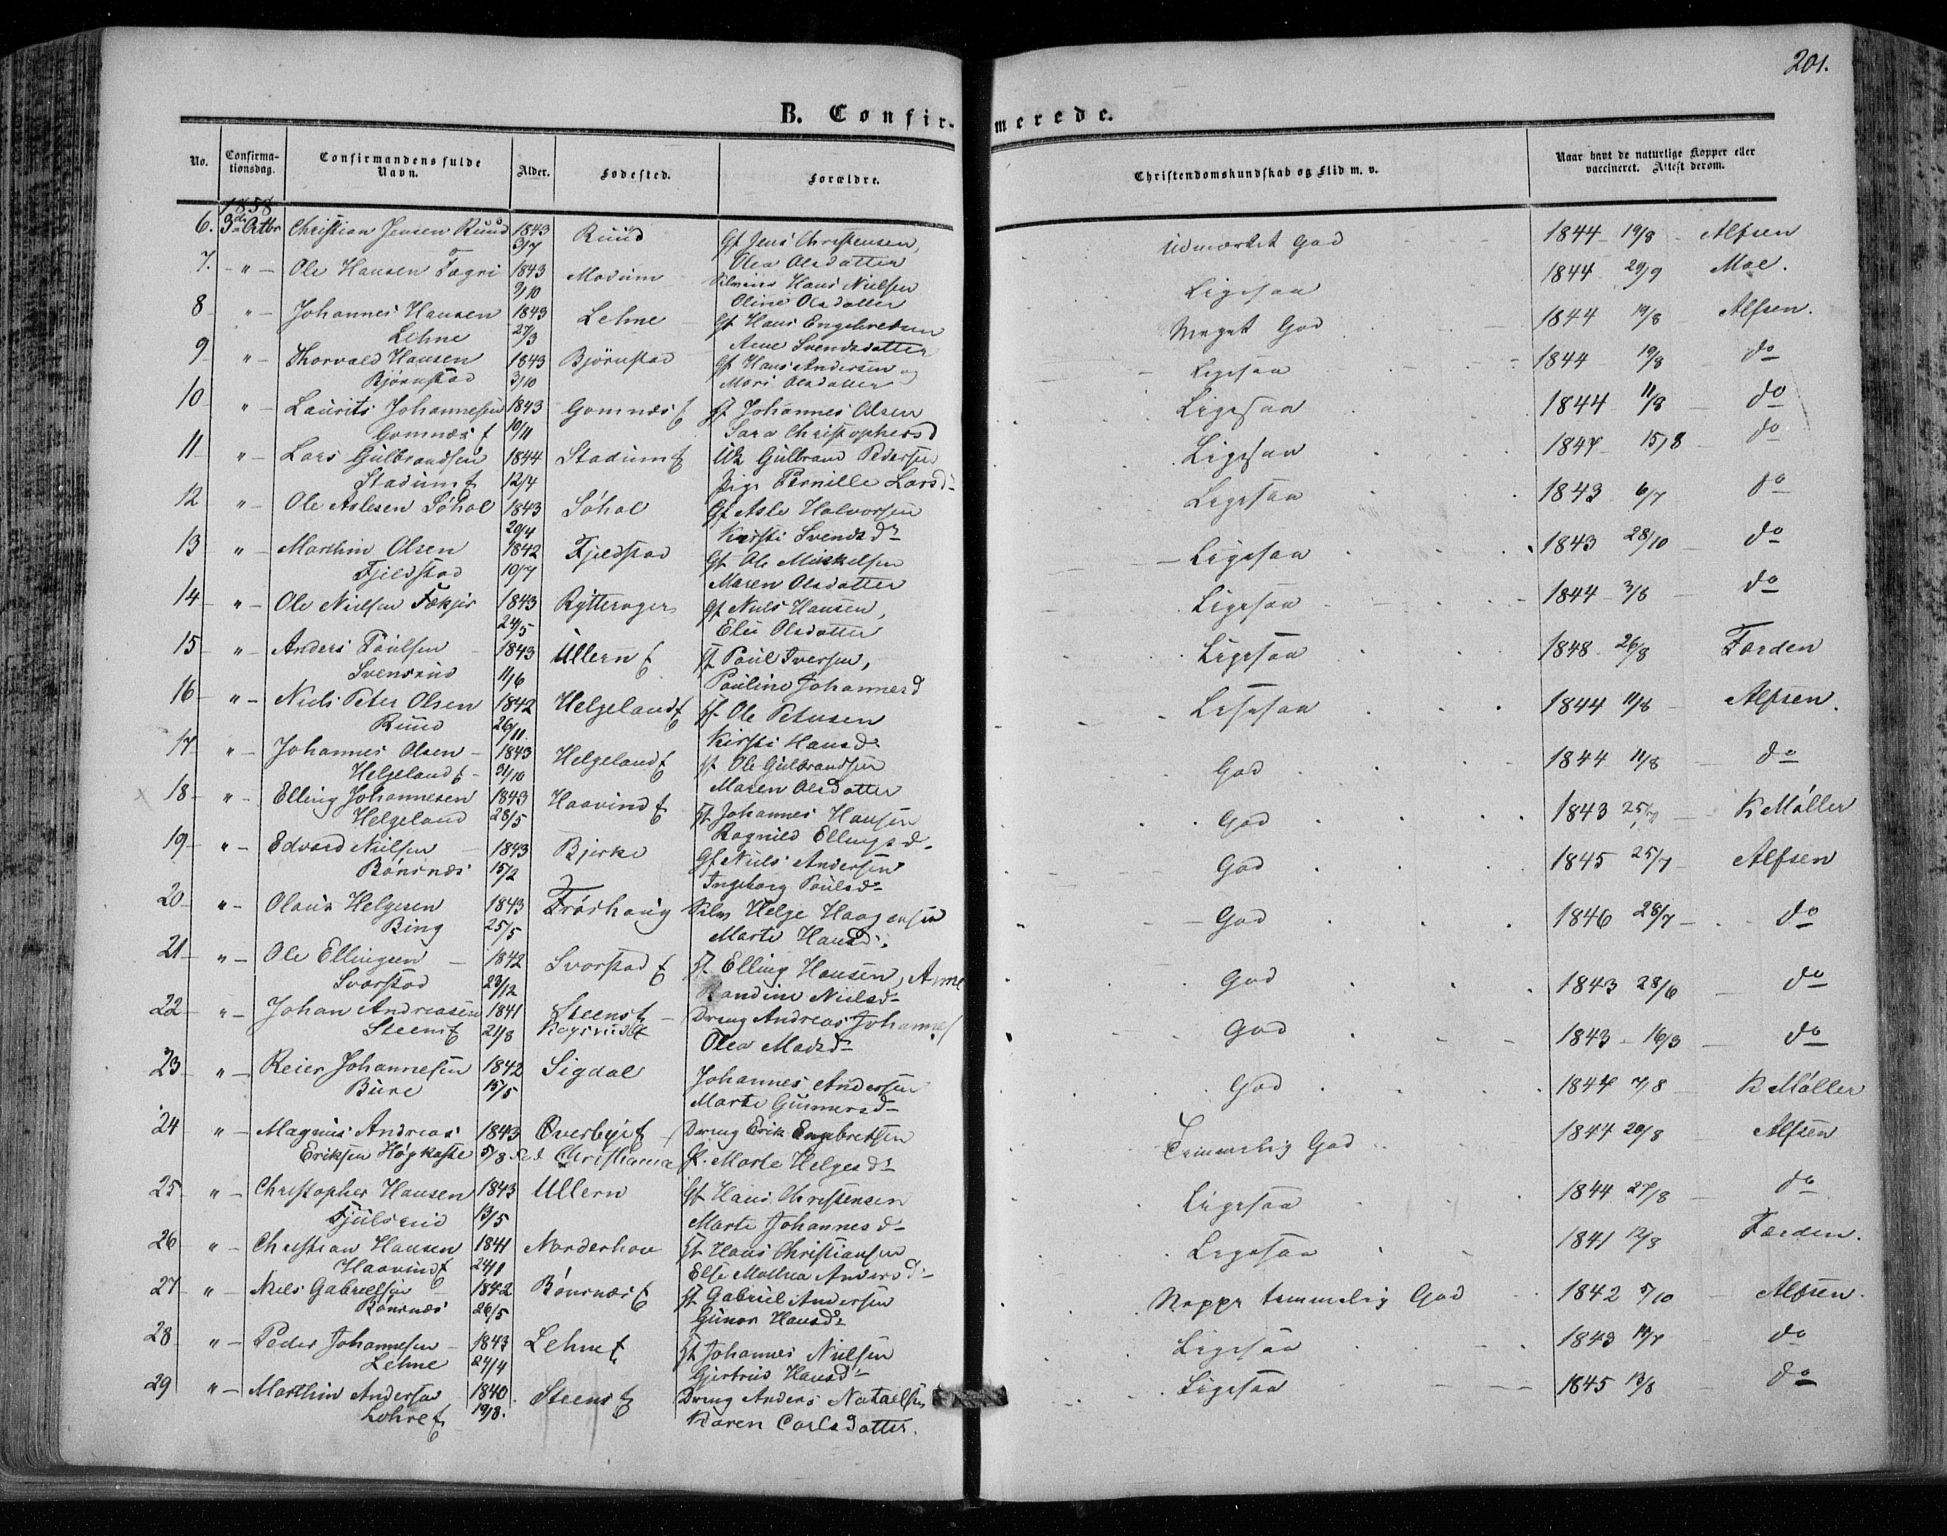 201.
B. Confirmerede.
No. Confirmationsdag. Confirmandens fulde Navn. Alder. Fødested. Forældre. Christendomskundskab og Flid m. v. Naar havt de naturlige Kopper eller vaccineret. Attest derom.
1858
6. 3die Octbr Christian Jensen Ruud 1843 3/7 Ruud Gf Jens Christensen, Olea Olsdatter Udmærket God 1844 19/8 Alfsen
7. " Ole Hansen Fagri 1843 9/10 Modum Hans Nielsen Oline Olsdatter Ligesaa 1844 29/9 Moe.
8 " Johannes Hansen Lehne 1843 27/3 Lehne Gf Hans Engebretsen Anne Svendsdatter Meget God 1844 19/8 Alfsen.
9 " Thorvald Hansen Bjørnstad 1843 3/10 Bjørnstad Gf Hans Andersen og Mari Olsdatter Ligesaa 1844 19/8 do
10 " Laurits Johannesen Gomnæs 1843 10/11 Gomnæs Johannes Olsen Sara Christophersd Ligesaa 1844 11/8 do
11 " Lars Gulbrandsen Stadum 1844 12/4 Stadum Uk Gulbrand Pedersen Pige Pernille Larsd Ligesaa 1847 15/8 do
12 " Ole Aslesen Søhol 1843 20/4 Søhol Gf Asle Halvorsen Kirsti Svendsdr Ligesaa 1843 6/7 do
13 " Marthin Olsen Fjeldstad 1842 10/7 Fjeldstad Gf Ole Mikkelsen Maren Olsdatter Ligesaa 1843 28/10 do
14 " Ole Nielsen 1843 24/5 Rytterager Gf Niels Hansen, Eli Olsdatter Ligesaa 1844 3/8 do
15 " Anders Paulsen Svensrud 1843 11/6 Ullern Paul Iversen, Pauline Johannesd Ligesaa 1848 26/8 Færden
16 " Niels Peter Olsen Ruud 1842 26/11 Helgeland Ole Petersen Kirsti Hansd Ligesaa 1844 11/8 Alfsen.
17 " Johannes Olsen Helgeland 1843 31/10 Helgeland Ole Gulbrandsen Maren Olsdatter God 1844 11/8 do
18 " Elling Johannesen Helgeland 1843 28/5 Haavind Johannes Hansen Ragnild Ellingsd. God 1843 25/7 K Møller
19 " Edvard Nielsen Bønsnæs 1843 15/2 Bjerke Gf Niels Andersen Ingeborg Paulsd God 1845 25/7 Alfsen
20 " Olaus Helgesen Bing 1843 25/5 Frøshaug Helge Haagensen Marte Hansd. God 1846 28/7 do
21 " Ole Ellingsen Svarstad 1842 23/12 Svarstad Elling Hansen, Anne Randine Nielsd God 1843 28/6 do
22 " Johan Andreasen Steens 1841 21/8 Steens Dreng Andreas Johannes Olea Madsd God 1843 16/3 do
23 " Reier Johannesen Bure 1842 15/5 Sigdal Johannes Andersen Marte Gunnersd God 1844 7/8 K Møller
24 " Magnus Andreas Eriksen Høgkaste 1843 5/8 Overbye Christiania Dreng Erik Engebretsen Marte Helgesd Temmelig God 1844 20/8 Alfsen
25 " Christopher Hansen Fjulsrud 1843 13/5 Ullern Gf Hans Christensen Marte Johannesd Ligesaa 1844 27/8 do
26 " Christian Hansen Haavind 1841 24/1 Norderhov Hans Christiansen Else Mathea Andersd Ligesaa 1841 12/8 Færden.
27 " Niels Gabrielsen Bønsnæs 1842 26/5 Bønsnæs Gabriel Andersen Gunor Hansd Neppe temmelig God 1842 5/10 Alfsen.
28 " Peder Johannesen Lehne 1843 24/4 Lehne Johannes Nielsen Gjertrud Hansd Ligesaa 1843 19/7 do
29 " Marthin Andersen Lohre 1840 19/8. Steens Dreng Anders Karen Carlsdatter. Ligesaa 1845 13/8 do